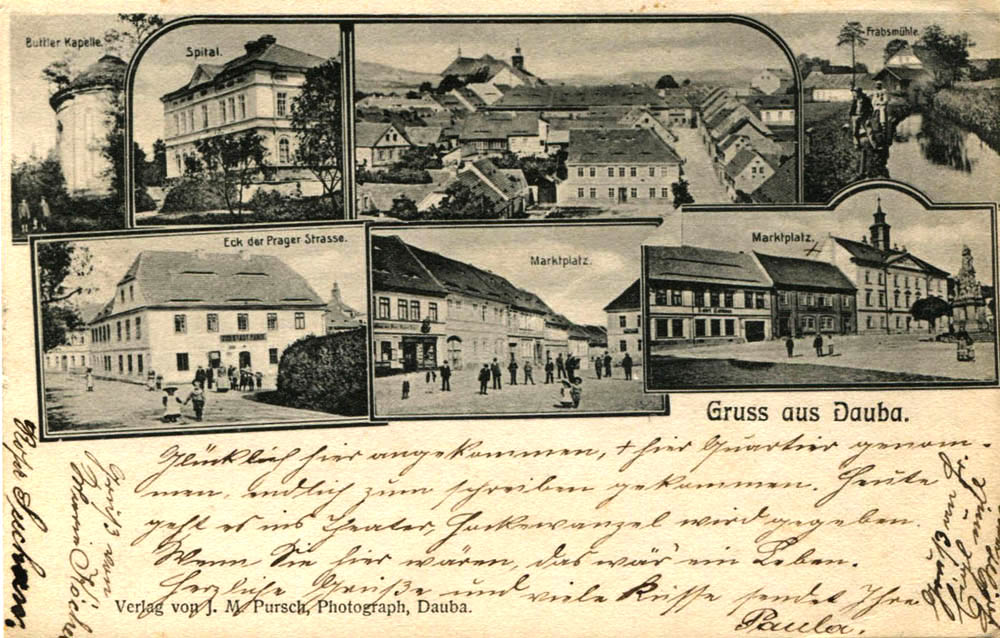 Buttler Kapelle.
Spital.
Frabsmühle.
Eck der Prager Strasse.
Marktplatz.
Marktplatz.
Gruss aus Dauba.
Glücklich hier angekommen, + hier Quartier genom-
men, endlich zum schreiben gekommen. Heute
geht es ins Theater, Hockewanzel wird gegeben.
Wenn Sie hier wären, das wär' ein Leben.
Herzliche Grüße und viele Küsse sendet Ihre
Paula.
Verlag von J. M. Pursch, Photograph, Dauba.
Gruß von